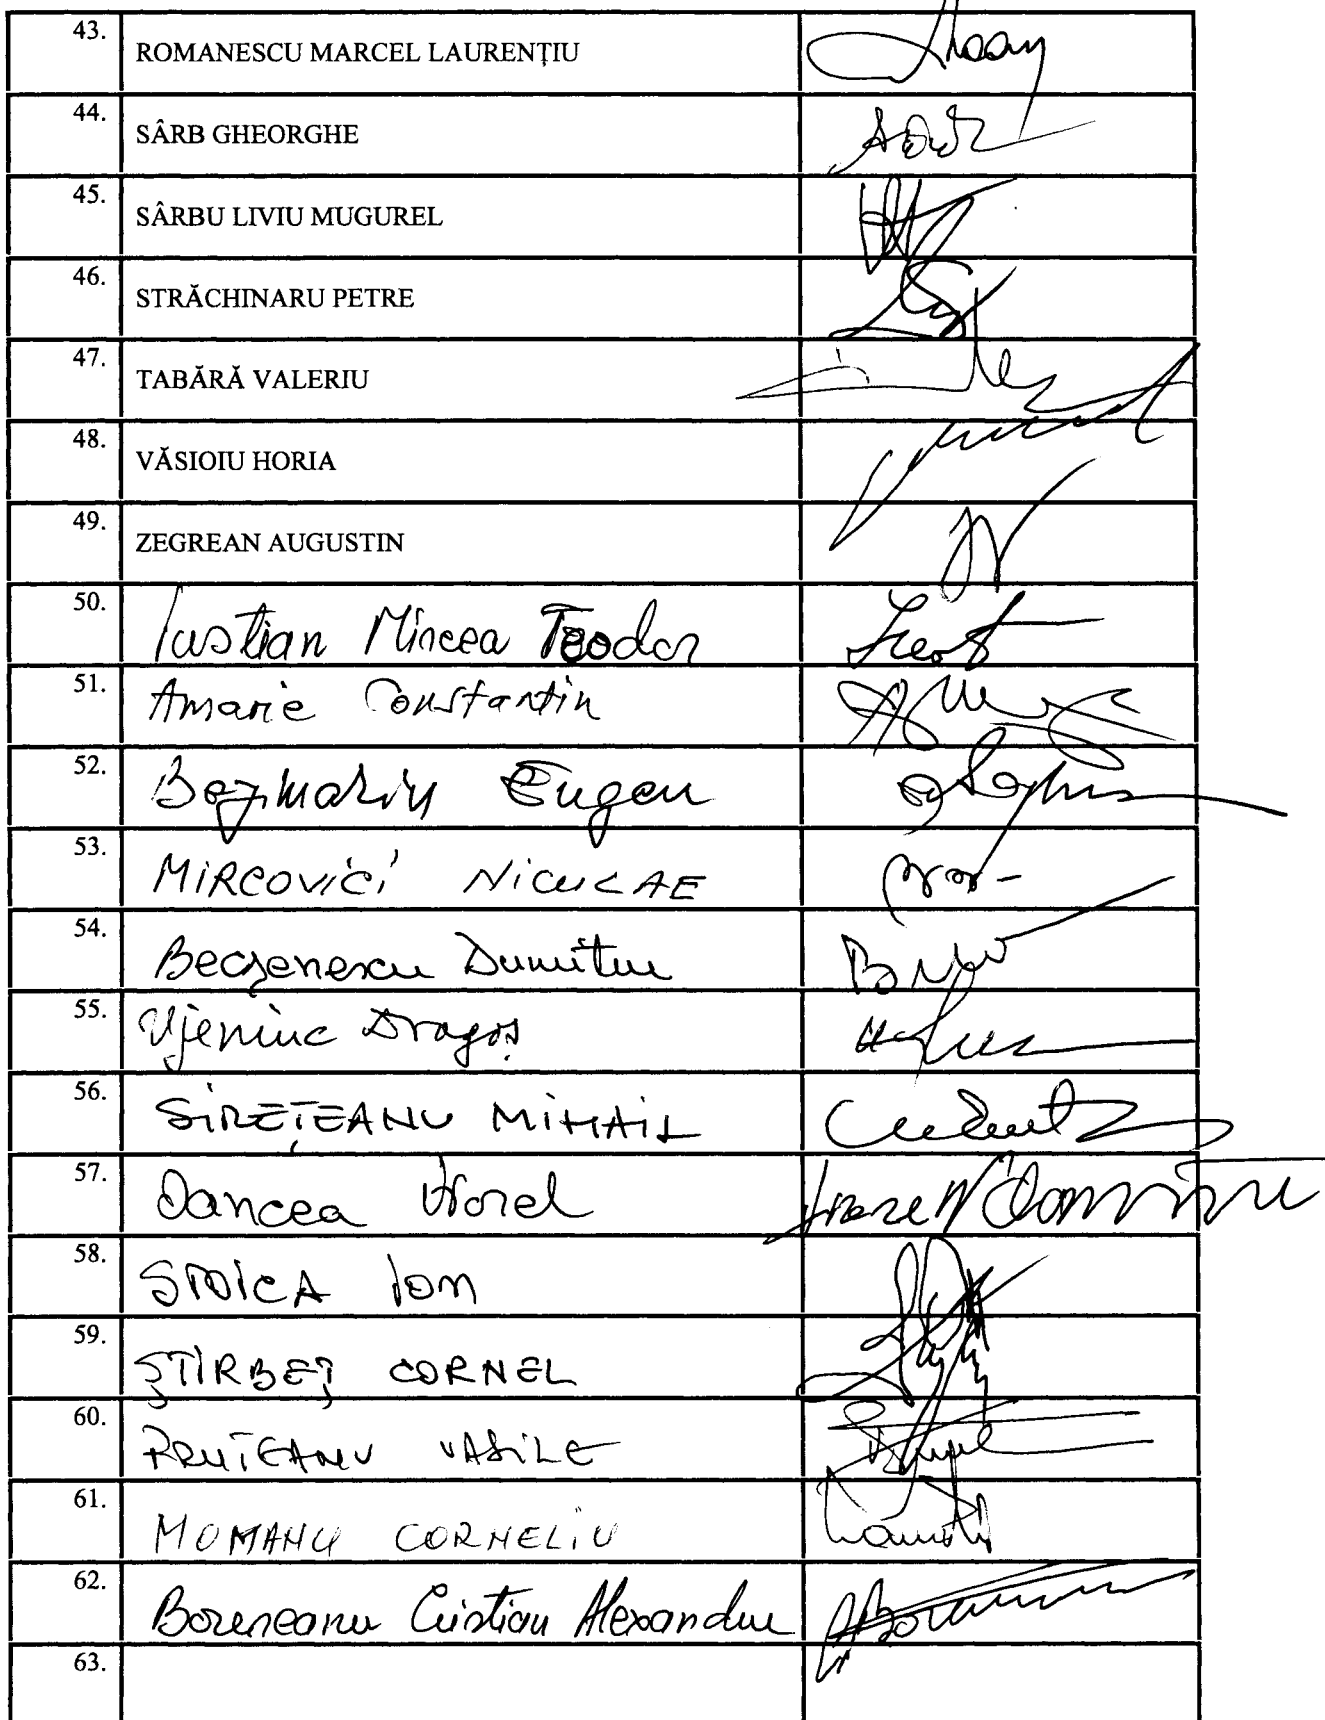 43. ROMANESCU MARCEL LAURENȚIU
44. SÂRB GHEORGHE
45. SÂRBU LIVIU MUGUREL
46. STRĂCHINARU PETRE
47. TABĂRĂ VALERIU
48. VĂSIOIU HORIA
49. ZEGREAN AUGUSTIN
50. Iustian Mircea Teodor
51. Amarie Constantin
52. Bejinariu Eugen
53. MIRCOVICI NICULAE
54. Becșenescu Dumitru
55. Ujeniuc Dragoș
56. SIREȚEANU MIHAIL
57. Dancea Viorel
58. STOICA Ion
59. ȘTIRBEȚ CORNEL
60. PRUTEANU VASILE
61. MOMANU CORNELIU
62. Boureanu Cristian Alexandru
63.